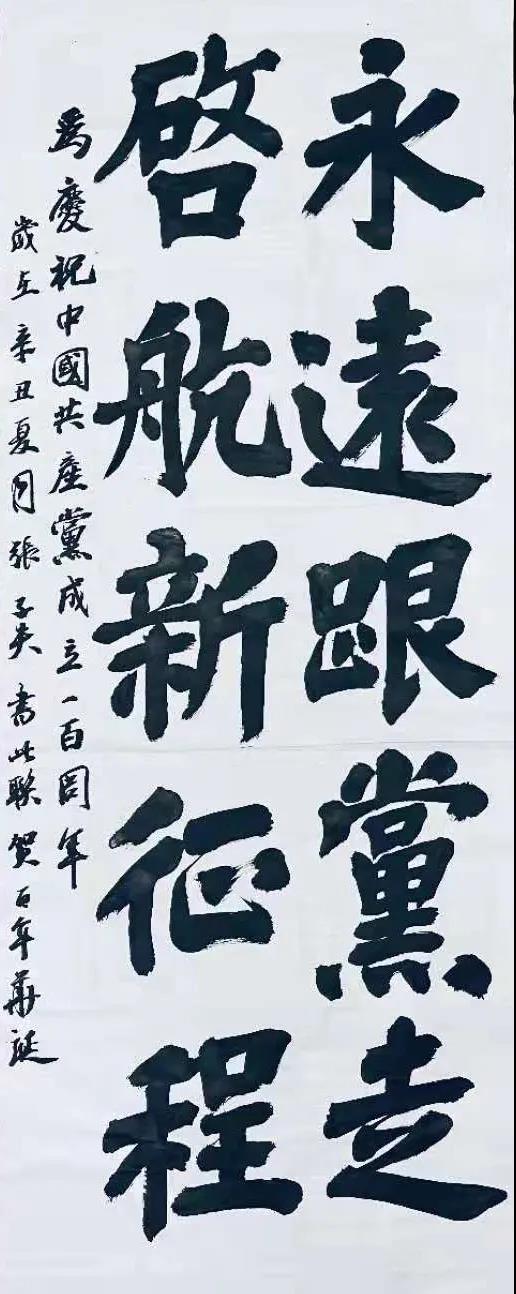 永遠跟黨走
啓航新征程
爲慶祝中國共産黨成立一百周年
歲在辛丑夏月張子夫書此聯賀百年華誕